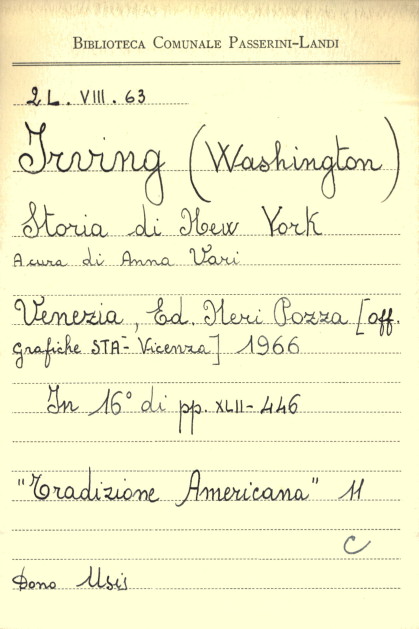 BIBLIOTECA COMUNALE PASSERINI-LANDI
2L. VIII. 63
Irving (Washington)
Storia di New York
A cura di Anna Vari
Venezia, Ed. Neri Pozza [off.
grafiche STA - Vicenza] 1966
In 16° di pp. XLII-446
"Tradizione Americana" 11
C
Dono Usis